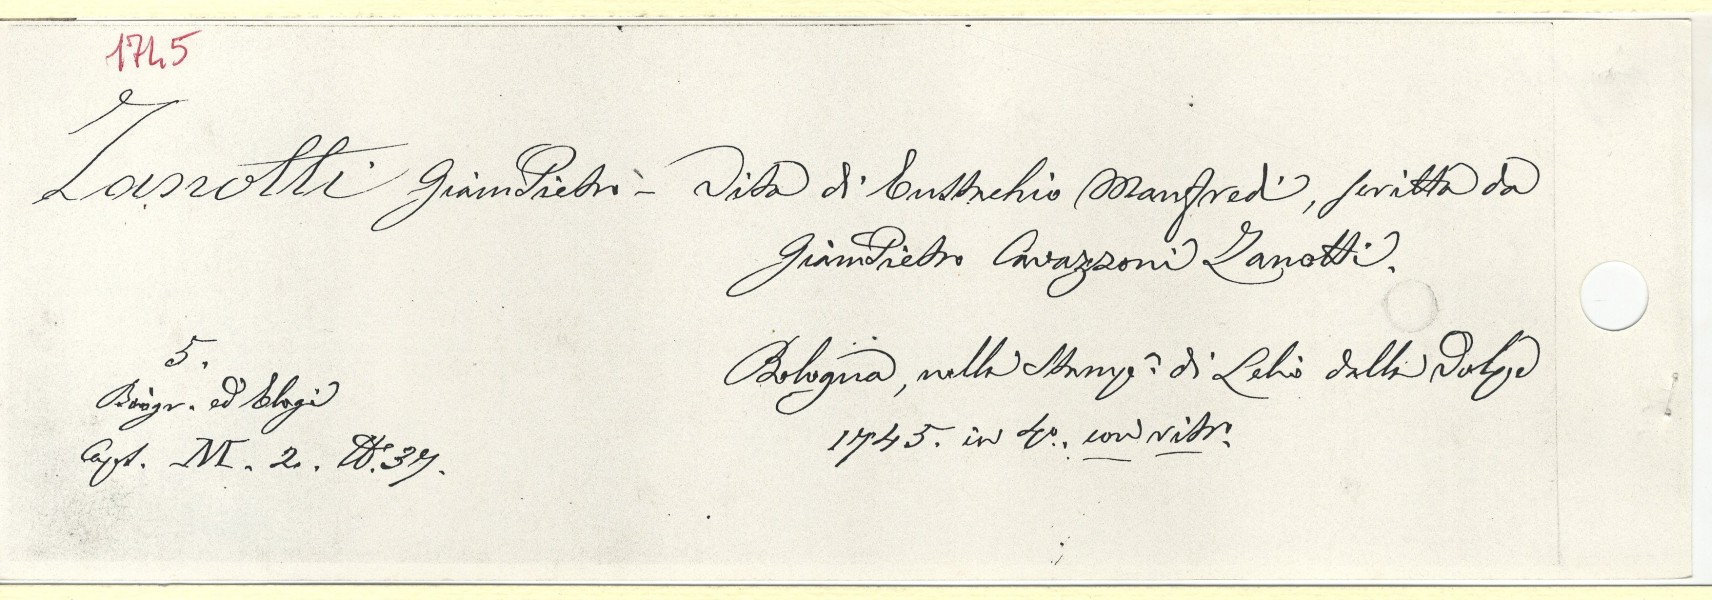 1745
Zanotti GiamPietro - Vita di Eustachio Manfredi, scritta da
GiamPietro Cavazzoni Zanotti.
Bologna, nella Stamp.a di Lelio dalla Volpe
1745. in 4°. con ritr.
5.
Biogr. ed Elogi
Cart. M. 2. N. 37.